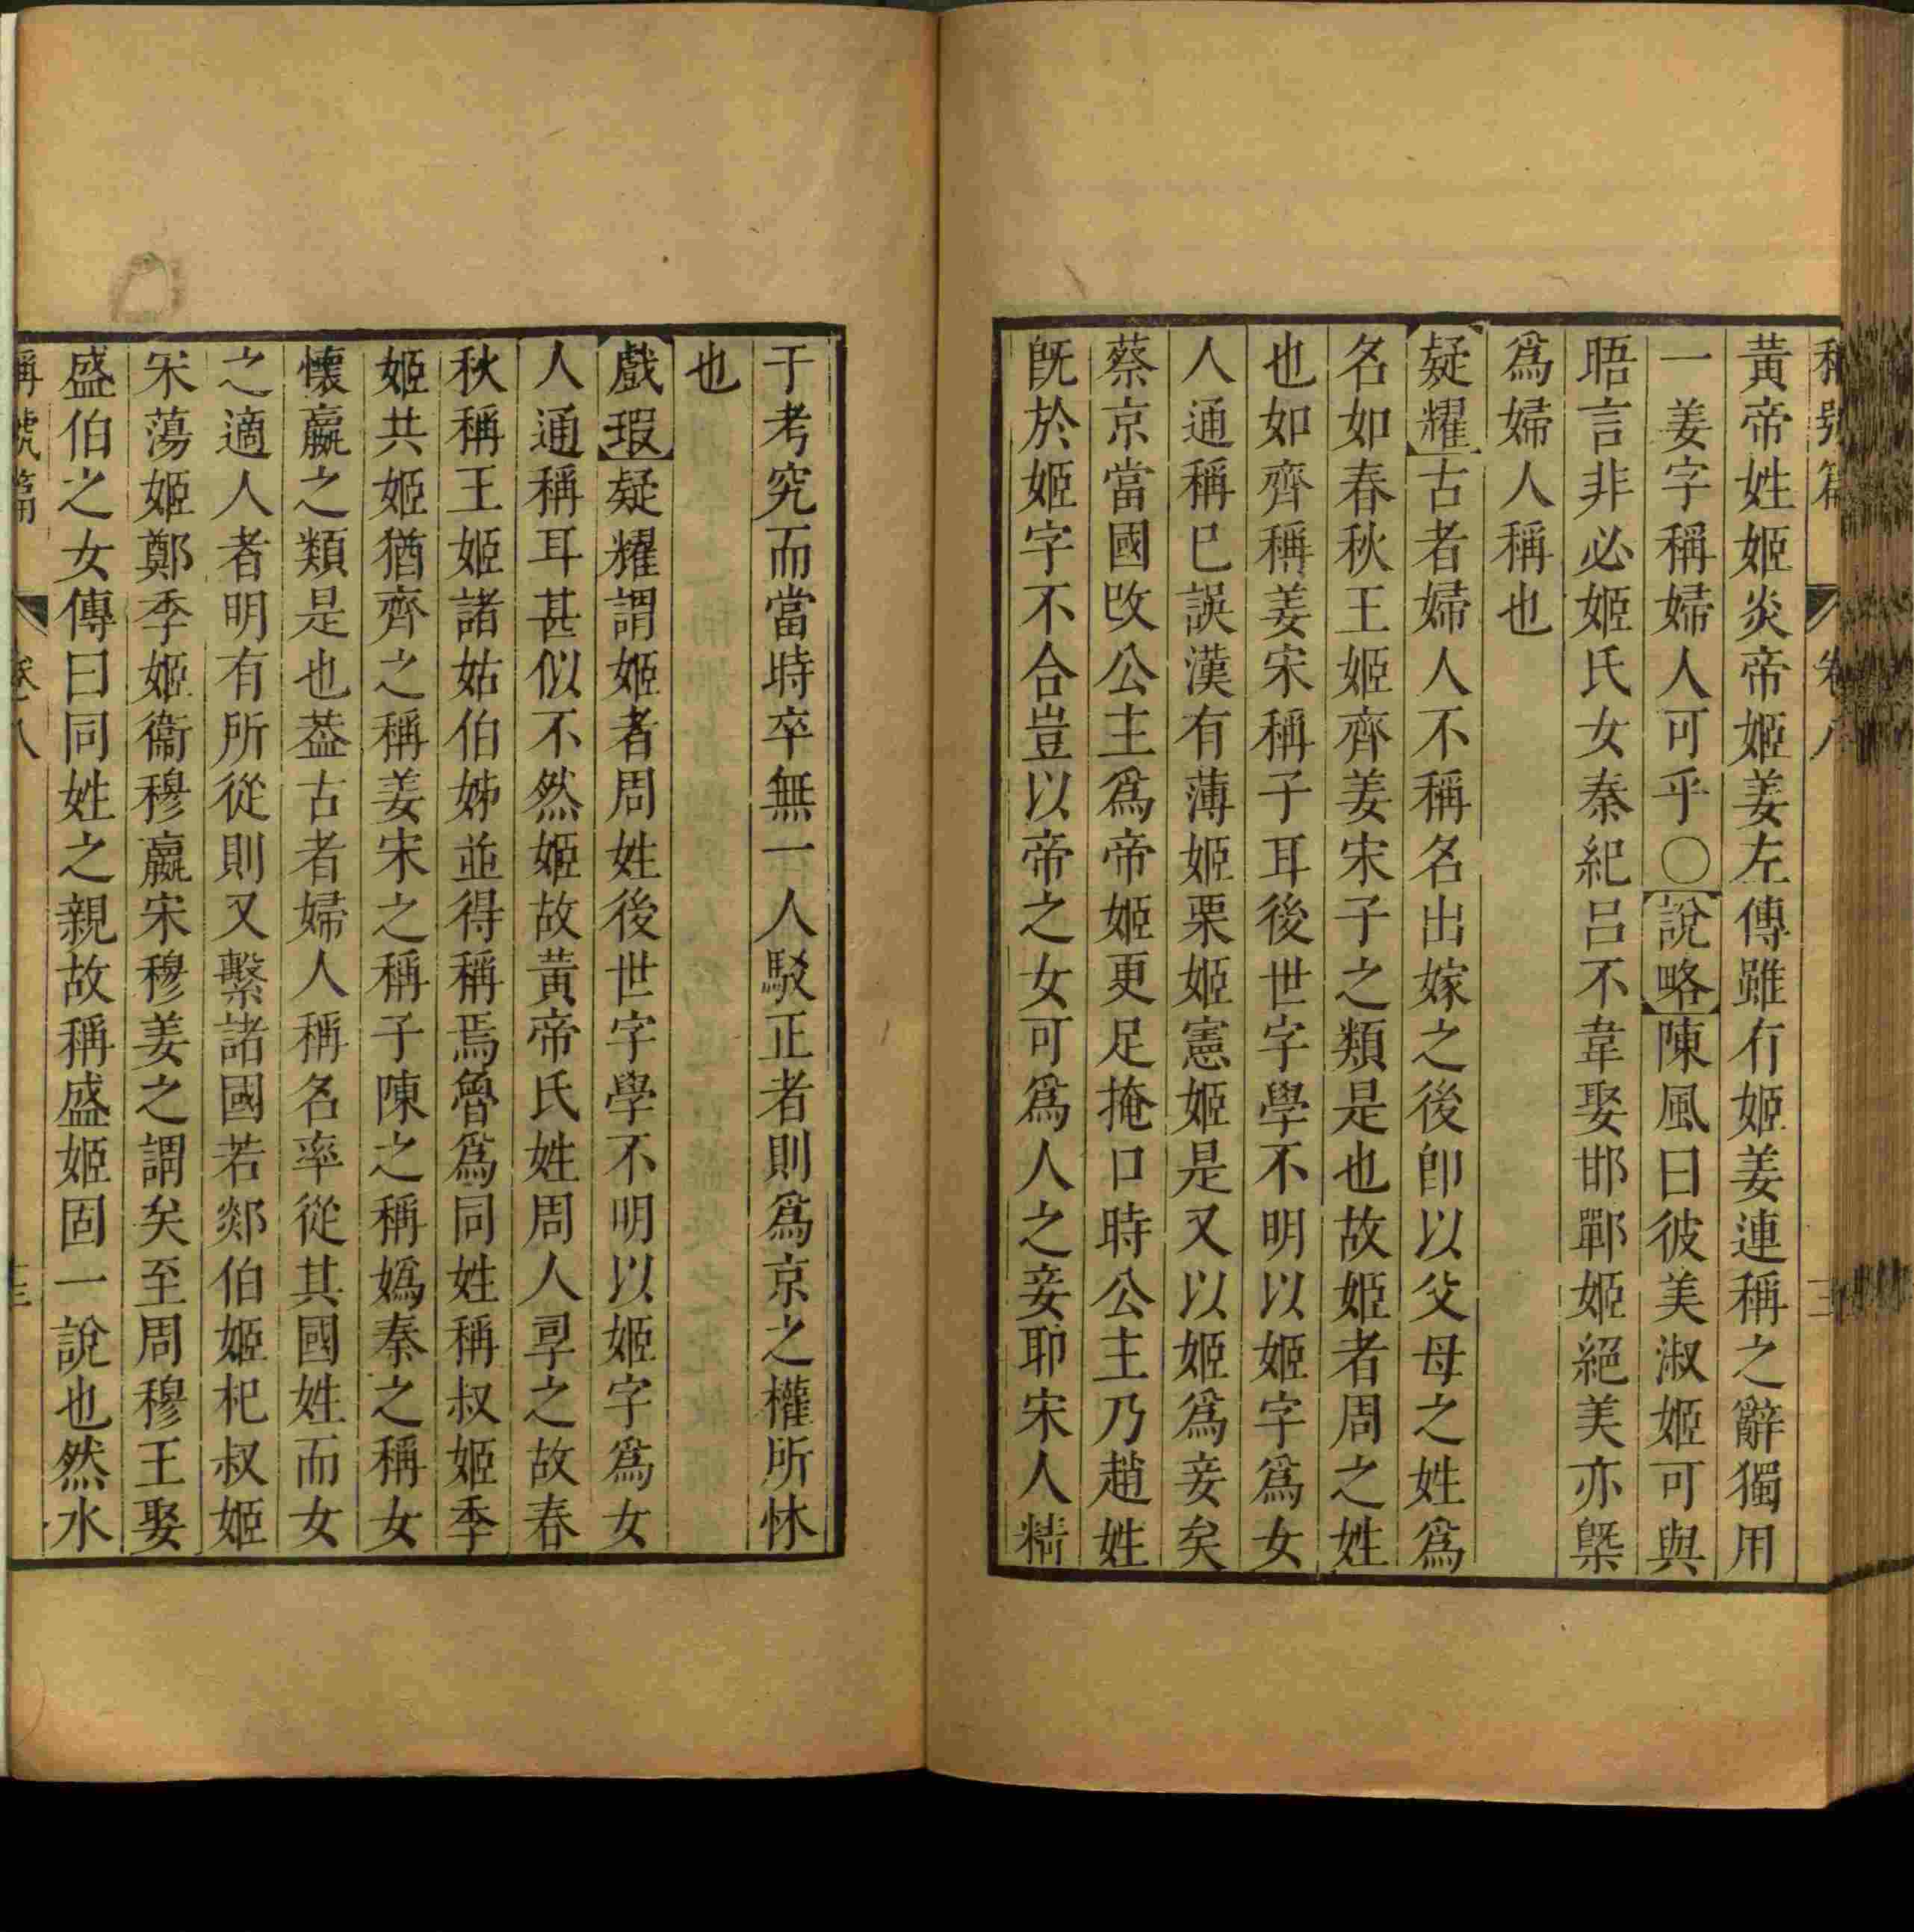 稱號篇 卷八
黃帝姓姬炎帝姬姜左傳雖有姬姜連稱之辭獨用
一姜字稱婦人可乎〇說略陳風曰彼美淑姬可與
晤言非必姬氏女秦紀呂不韋娶邯鄲姬絕美亦槩
爲婦人稱也
疑耀古者婦人不稱名出嫁之後卽以父母之姓爲
名如春秋王姬齊姜宋子之類是也故姬者周之姓
也如齊稱姜宋稱子耳後世字學不明以姬字爲女
人通稱巳誤漢有薄姬栗姬憲姬是又以姬爲妾矣
蔡京當國改公主爲帝姬更足掩口時公主乃趙姓
旣於姬字不合豈以帝之女可爲人之妾耶宋人精
于考究而當時卒無一人駁正者則爲京之權所怵
也
戲瑕疑耀謂姬者周姓後世字學不明以姬字爲女
人通稱耳甚似不然姬故黃帝氏姓周人𠭇之故春
秋稱王姬諸姑伯姊並得稱焉魯爲同姓稱叔姬季
姬共姬猶齊之稱姜宋之稱子陳之稱嬀秦之稱女
懷嬴之類是也葢古者婦人稱名率從其國姓而女
之適人者明有所從則又繫諸國若郯伯姬杞叔姬
宋蕩姬鄭季姬衞穆嬴宋穆姜之謂矣至周穆王娶
盛伯之女傳曰同姓之親故稱盛姬固一說也然水
稱號篇 卷八